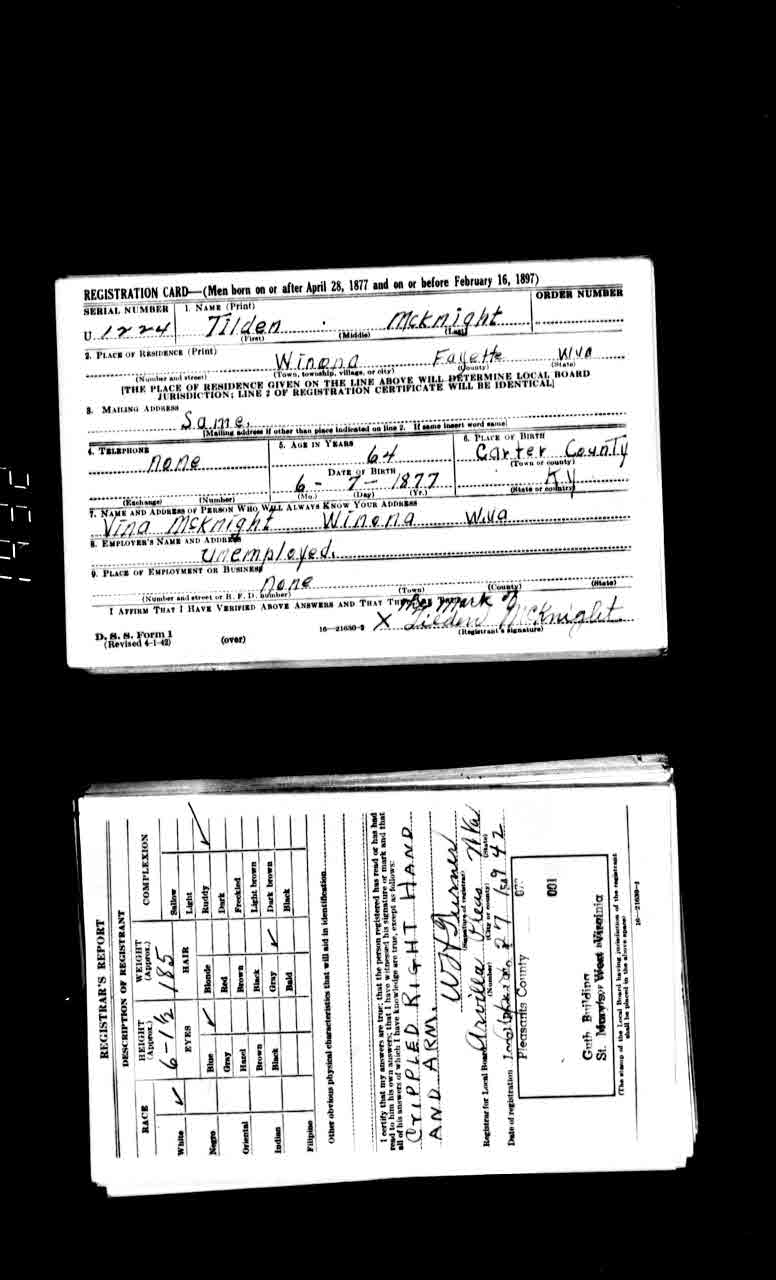 REGISTRATION CARD—(Men born on or after April 28, 1877 and on or before February 16, 1897)
SERIAL NUMBER
1. NAME (Print)
ORDER NUMBER
U 1224
Tilden McKnight
(First) (Middle) (Last)
2. PLACE OF RESIDENCE (Print)
Winona Fayette W.va
(Number and street) (Town, township, village, or city) (County) (State)
[THE PLACE OF RESIDENCE GIVEN ON THE LINE ABOVE WILL DETERMINE LOCAL BOARD
JURISDICTION; LINE 2 OF REGISTRATION CERTIFICATE WILL BE IDENTICAL]
3. MAILING ADDRESS
Same.
[Mailing address if other than place indicated on line 2. If same insert word same]
4. TELEPHONE
none
(Exchange) (Number)
5. AGE IN YEARS
64
DATE OF BIRTH
6 - 7 - 1877
(Mo.) (Day) (Yr.)
6. PLACE OF BIRTH
Carter County
(Town or county)
Ky
(State or country)
7. NAME AND ADDRESS OF PERSON WHO WILL ALWAYS KNOW YOUR ADDRESS
Vina McKnight Winona W.va
8. EMPLOYER'S NAME AND ADDRESS
unemployed.
9. PLACE OF EMPLOYMENT OR BUSINESS
none
(Number and street or R. F. D. number) (Town) (County) (State)
I AFFIRM THAT I HAVE VERIFIED ABOVE ANSWERS AND THAT
mark of
X Tilden McKnight
D. S. S. Form 1
(Revised 4-1-42)
(over)
16—21630-2
(Registrant's signature)
REGISTRAR'S REPORT
DESCRIPTION OF REGISTRANT
RACE
HEIGHT (Approx.)
WEIGHT (Approx.)
COMPLEXION
6-1½ 185
EYES
HAIR
White ✓
Negro
Oriental
Indian
Filipino
Blue ✓
Gray
Hazel
Brown
Black
Blonde
Red
Brown
Black
Gray ✓
Bald
Sallow
Light
Ruddy ✓
Dark
Freckled
Light brown
Dark brown
Black
Other obvious physical characteristics that will aid in identification
I certify that my answers are true; that the person registered has read or has had
read to him his own answers; that I have witnessed his signature or mark and that
all of his answers of which I have knowledge are true, except as follows:
CRIPPLED RIGHT HAND
AND ARM.
(Signature of registrar)
Registrar for Local Board
(Number) (City or county) (State)
Date of registration
27 1942
Pleasants County
001
Guth Building
St. Marys, West Virginia
(The stamp of the Local Board having jurisdiction of the registrant
shall be placed in the above space)
16—21630-1